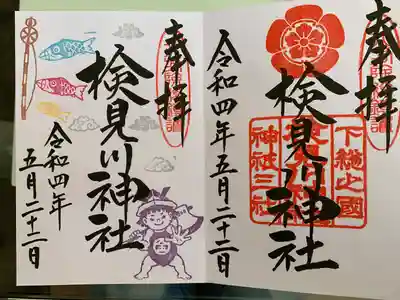 奉拝
検見川神社
令和四年
五月二十二日
奉拝
検見川神社
令和四年五月二十二日
下総之國
神祇三社